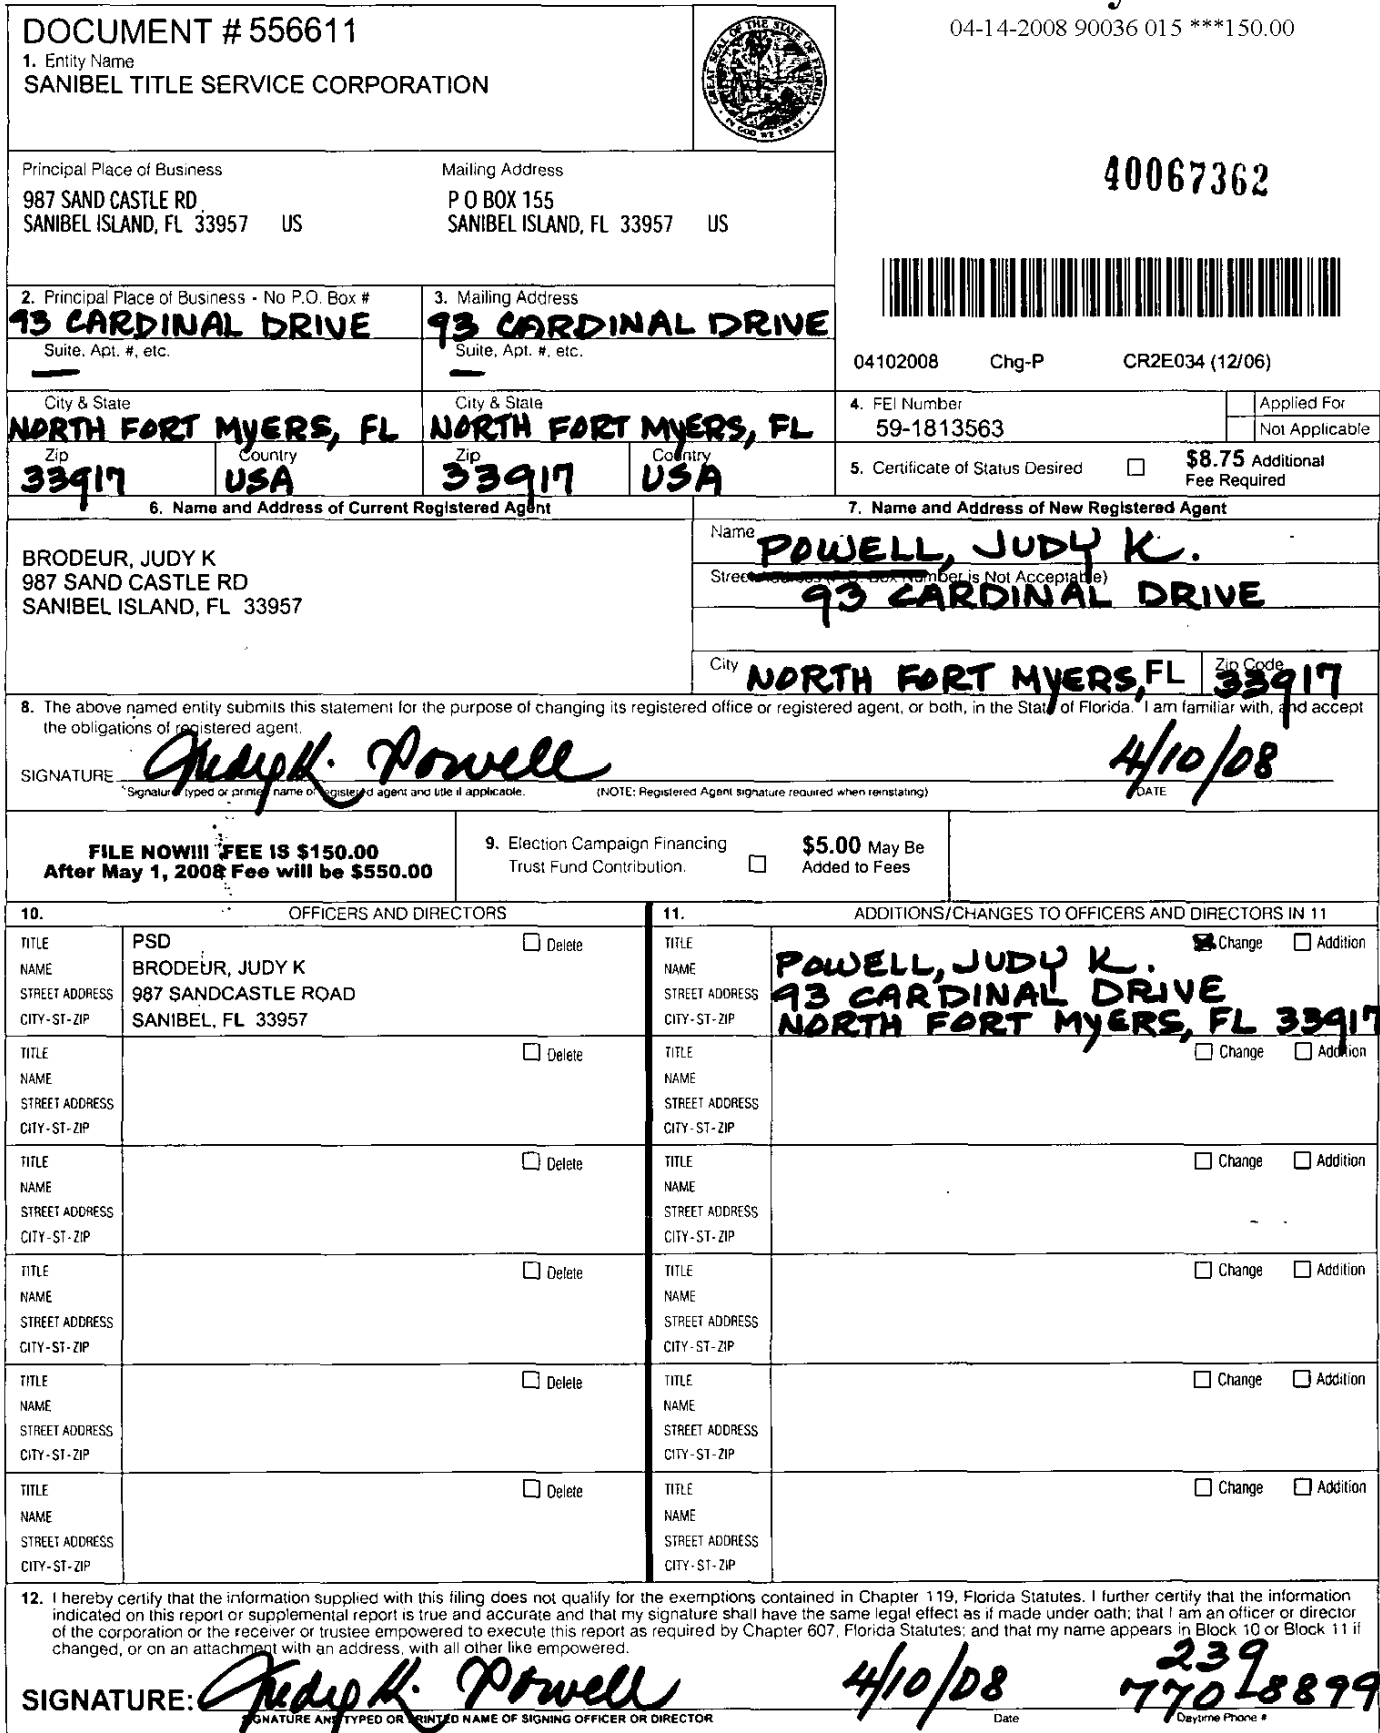 04-14-2008 90036 015 ***150.00
DOCUMENT # 556611
1. Entity Name
SANIBEL TITLE SERVICE CORPORATION
GREAT SEAL OF THE STATE OF FLORIDA
IN GOD WE TRUST
40067362
Principal Place of Business
987 SAND CASTLE RD
SANIBEL ISLAND, FL 33957 US
Mailing Address
P O BOX 155
SANIBEL ISLAND, FL 33957 US
2. Principal Place of Business - No P.O. Box #
93 CARDINAL DRIVE
Suite, Apt. #, etc.
—
City & State
NORTH FORT MYERS, FL
Zip
33917
Country
USA
3. Mailing Address
93 CARDINAL DRIVE
Suite, Apt. #, etc.
—
City & State
NORTH FORT MYERS, FL
Zip
33917
Country
USA
04102008 Chg-P CR2E034 (12/06)
4. FEI Number
59-1813563
Applied For
Not Applicable
5. Certificate of Status Desired ☐ $8.75 Additional
Fee Required
6. Name and Address of Current Registered Agent
BRODEUR, JUDY K
987 SAND CASTLE RD
SANIBEL ISLAND, FL 33957
7. Name and Address of New Registered Agent
Name POWELL, JUDY K.
Street Address (P.O. Box Number is Not Acceptable)
93 CARDINAL DRIVE
City NORTH FORT MYERS, FL Zip Code 33917
8. The above named entity submits this statement for the purpose of changing its registered office or registered agent, or both, in the State of Florida. I am familiar with, and accept
the obligations of registered agent.
SIGNATURE Judy K. Powell 4/10/08
Signature, typed or printed name of registered agent and title if applicable. (NOTE: Registered Agent signature required when reinstating) DATE
FILE NOW!!! FEE IS $150.00
After May 1, 2008 Fee will be $550.00
9. Election Campaign Financing
Trust Fund Contribution. ☐ $5.00 May Be
Added to Fees
10. OFFICERS AND DIRECTORS
TITLE PSD ☐ Delete
NAME BRODEUR, JUDY K
STREET ADDRESS 987 SANDCASTLE ROAD
CITY-ST-ZIP SANIBEL, FL 33957
TITLE ☐ Delete
NAME
STREET ADDRESS
CITY-ST-ZIP
TITLE ☐ Delete
NAME
STREET ADDRESS
CITY-ST-ZIP
TITLE ☐ Delete
NAME
STREET ADDRESS
CITY-ST-ZIP
TITLE ☐ Delete
NAME
STREET ADDRESS
CITY-ST-ZIP
TITLE ☐ Delete
NAME
STREET ADDRESS
CITY-ST-ZIP
11. ADDITIONS/CHANGES TO OFFICERS AND DIRECTORS IN 11
TITLE ☒ Change ☐ Addition
NAME POWELL, JUDY K.
STREET ADDRESS 93 CARDINAL DRIVE
CITY-ST-ZIP NORTH FORT MYERS, FL 33917
TITLE ☐ Change ☐ Addition
NAME
STREET ADDRESS
CITY-ST-ZIP
TITLE ☐ Change ☐ Addition
NAME
STREET ADDRESS
CITY-ST-ZIP
TITLE ☐ Change ☐ Addition
NAME
STREET ADDRESS
CITY-ST-ZIP
TITLE ☐ Change ☐ Addition
NAME
STREET ADDRESS
CITY-ST-ZIP
TITLE ☐ Change ☐ Addition
NAME
STREET ADDRESS
CITY-ST-ZIP
12. I hereby certify that the information supplied with this filing does not qualify for the exemptions contained in Chapter 119, Florida Statutes. I further certify that the information
indicated on this report or supplemental report is true and accurate and that my signature shall have the same legal effect as if made under oath; that I am an officer or director
of the corporation or the receiver or trustee empowered to execute this report as required by Chapter 607, Florida Statutes; and that my name appears in Block 10 or Block 11 if
changed, or on an attachment with an address, with all other like empowered.
SIGNATURE: Judy K. Powell 4/10/08 239 770-8899
SIGNATURE AND TYPED OR PRINTED NAME OF SIGNING OFFICER OR DIRECTOR Date Daytime Phone #